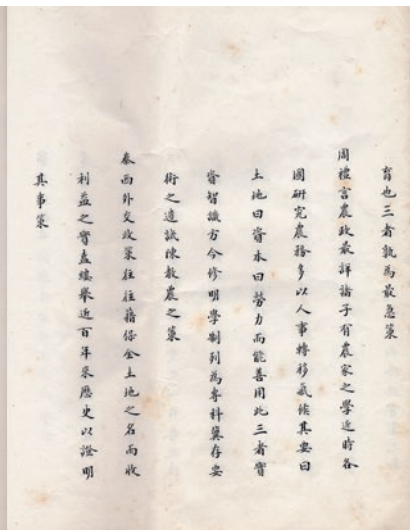 育也三者孰為最急策
周禮言農政最詳諸子有農家之學近時各
國研究農務多以人事轉移氣候其要曰
土地曰資本曰勞力而能善用此三者實
資智識方今修明學制列為專科冀存要
術之遺試陳教農之策
泰西外交政策往往藉保全土地之名而收
利益之實盍縷舉近百年來歷史以證明
其事策